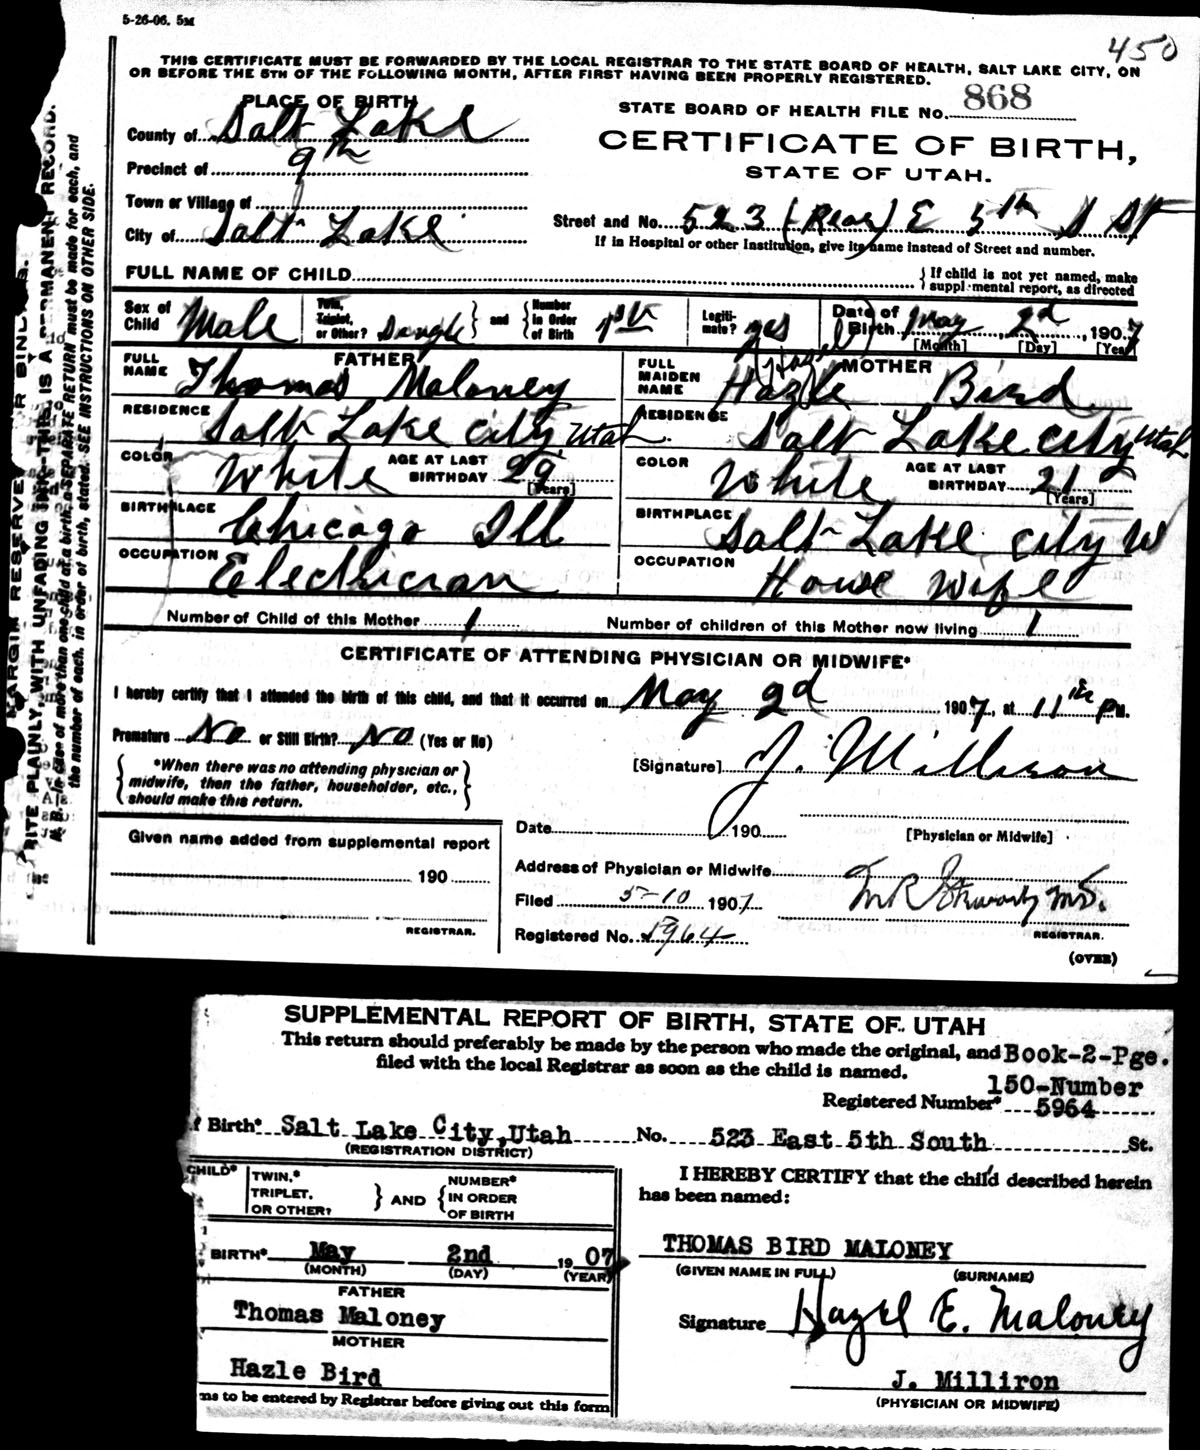 5-26-06. 5M
450
THIS CERTIFICATE MUST BE FORWARDED BY THE LOCAL REGISTRAR TO THE STATE BOARD OF HEALTH, SALT LAKE CITY, ON
OR BEFORE THE 5TH OF THE FOLLOWING MONTH, AFTER FIRST HAVING BEEN PROPERLY REGISTERED.
PLACE OF BIRTH
STATE BOARD OF HEALTH FILE No. 868
County of Salt Lake
CERTIFICATE OF BIRTH,
Precinct of 9th
STATE OF UTAH.
Town or Village of
Street and No. 523 (Rear) E 5th S St
City of Salt Lake
If in Hospital or other Institution, give its name instead of Street and number.
FULL NAME OF CHILD
{ If child is not yet named, make
supplemental report, as directed
Sex of Child Male
Twin, Triplet, or Other? Single } and { Number in Order of Birth 1st
Legitimate? yes
Date of Birth May 2d, 1907
[Month] [Day] [Year]
FATHER
(Hazel) MOTHER
FULL NAME Thomas Maloney
FULL MAIDEN NAME Hazle Bird
RESIDENCE Salt Lake City, Utah.
RESIDENCE Salt Lake City Utah
COLOR White AGE AT LAST BIRTHDAY 29 [Years]
COLOR White AGE AT LAST BIRTHDAY 21 [Years]
BIRTHPLACE Chicago Ill
BIRTHPLACE Salt Lake City
OCCUPATION Electrician
OCCUPATION House wife
Number of Child of this Mother 1
Number of children of this Mother now living 1
CERTIFICATE OF ATTENDING PHYSICIAN OR MIDWIFE*
I hereby certify that I attended the birth of this child, and that it occurred on May 2d 1907, at 11th P.M.
Premature No or Still Birth? No (Yes or No)
{ *When there was no attending physician or
midwife, then the father, householder, etc.,
should make this return. }
[Signature] J. Milliron
Date 190
[Physician or Midwife]
Given name added from supplemental report
190
REGISTRAR.
Address of Physician or Midwife
Filed 5-10 1907
Registered No. 5964
REGISTRAR.
(OVER)
MARGIN RESERVED FOR BINDING.
WRITE PLAINLY, WITH UNFADING INK—THIS IS A PERMANENT RECORD.
N. B.—In case of more than one child at a birth, a SEPARATE RETURN must be made for each, and
the number of each, in order of birth, stated. SEE INSTRUCTIONS ON OTHER SIDE.
SUPPLEMENTAL REPORT OF BIRTH, STATE OF UTAH
This return should preferably be made by the person who made the original, and Book-2-Pge.
filed with the local Registrar as soon as the child is named.
150-Number
Registered Number* 5964
f Birth* Salt Lake City, Utah No. 523 East 5th South St.
(REGISTRATION DISTRICT)
CHILD* TWIN,* TRIPLET, OR OTHER? } AND { NUMBER* IN ORDER OF BIRTH
I HEREBY CERTIFY that the child described herein
has been named:
BIRTH* May 2nd 1907
(MONTH) (DAY) (YEAR)
THOMAS BIRD MALONEY
(GIVEN NAME IN FULL) (SURNAME)
FATHER
Thomas Maloney
Signature Hazel E. Maloney
MOTHER
Hazle Bird
J. Milliron
(PHYSICIAN OR MIDWIFE)
ms to be entered by Registrar before giving out this form